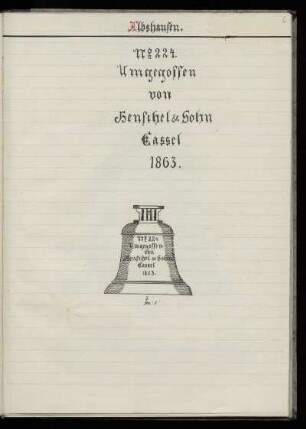 Albshausen.
No 224.
Umgegossen
von
Henschel & Sohn
Cassel
1863.
No 224.
Umgegossen
von
Henschel & Sohn
Cassel
1863.